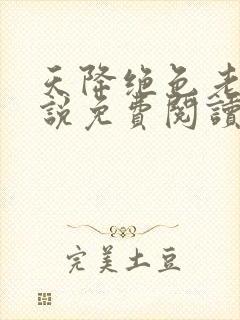 天降绝色老
説免費閱讀
完美土豆